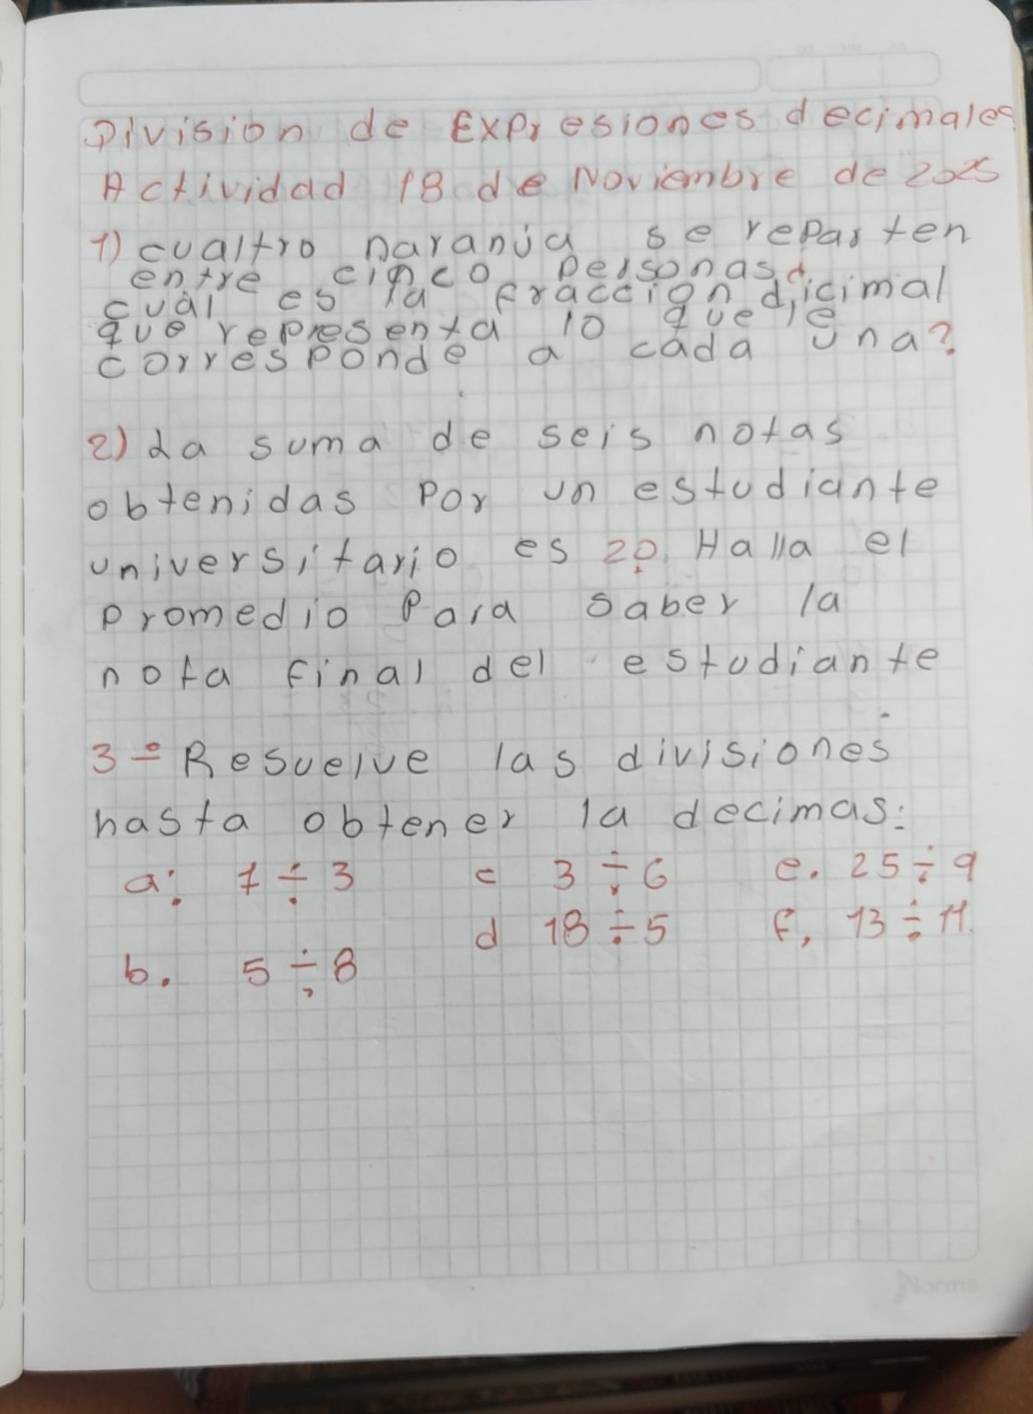 División de Expresiones decimales
Actividad 18 de Noviembre de 2025
1) cualtro naranja se reparten
entre cinco personas¿
cuál es la fracción dicimal
que representa lo que le
corresponde a cada una?
2) La suma de seis notas
obtenidas Por un estudiante
universitario es 20 Halla el
promedio Para saber la
nota final del estudiante
3= Resuelve las divisiones
hasta obtener la decimas:
a: 1 ÷ 3 c 3 ÷ 6 e. 25 ÷ 9
d 18 ÷ 5 f, 13 ÷ 11
b. 5 ÷ 8
Norma